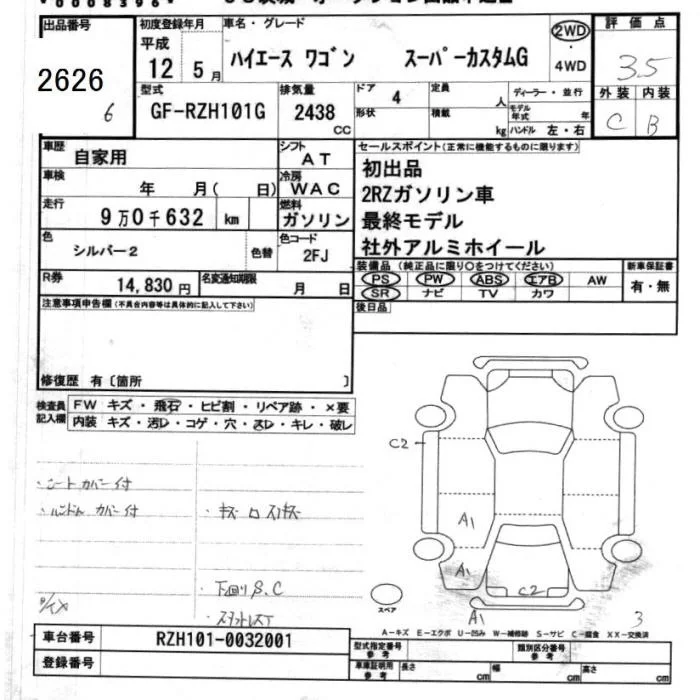 出品番号 初度登録年月 車名・グレード 2WD 評価点
2626 平成 12年 5月 ハイエース ワゴン スーパーカスタムG ・ 4WD 3.5
6 型式 排気量 ドア 定員 ディーラー・並行 外装 内装
GF-RZH101G 2438 CC 4 人 モデル年式 年 C B
形状 積載 kg ハンドル 左・右
車歴 自家用 シフト AT セールスポイント(正常に機能するものに限ります)
車検 年 月( 日) 冷房 WAC 初出品
走行 9万0千632 km 燃料 ガソリン 2RZガソリン車
色 シルバー2 色替 色コード 2FJ 最終モデル
社外アルミホイール
R券 14,830円 名変通知期限 月 日 装備品(純正品に限り○をつけてください) 新車保証書
PS PW ABS エアB AW 有・無
SR ナビ TV カワ
注意事項申告欄(不具合内容等は具体的に記入して下さい) 後日品
修復歴 有〔箇所 〕
検査員記入欄 FW キズ・飛石・ヒビ割・リペア跡・×要
内装 キズ・汚レ・コゲ・穴・スレ・キレ・破レ
C2
・シートカバー付
・ハンドルカバー付
A1
A1
C2
下回りS.C
A1
3
スペア
A-キズ E-エクボ U-凹み W-補修跡 S-サビ C-腐食 XX-交換済
車台番号 RZH101-0032001 型式指定番号 参考 類別区分番号 参考
登録番号 車庫証明用 参考 長さ cm 幅 cm 高さ cm